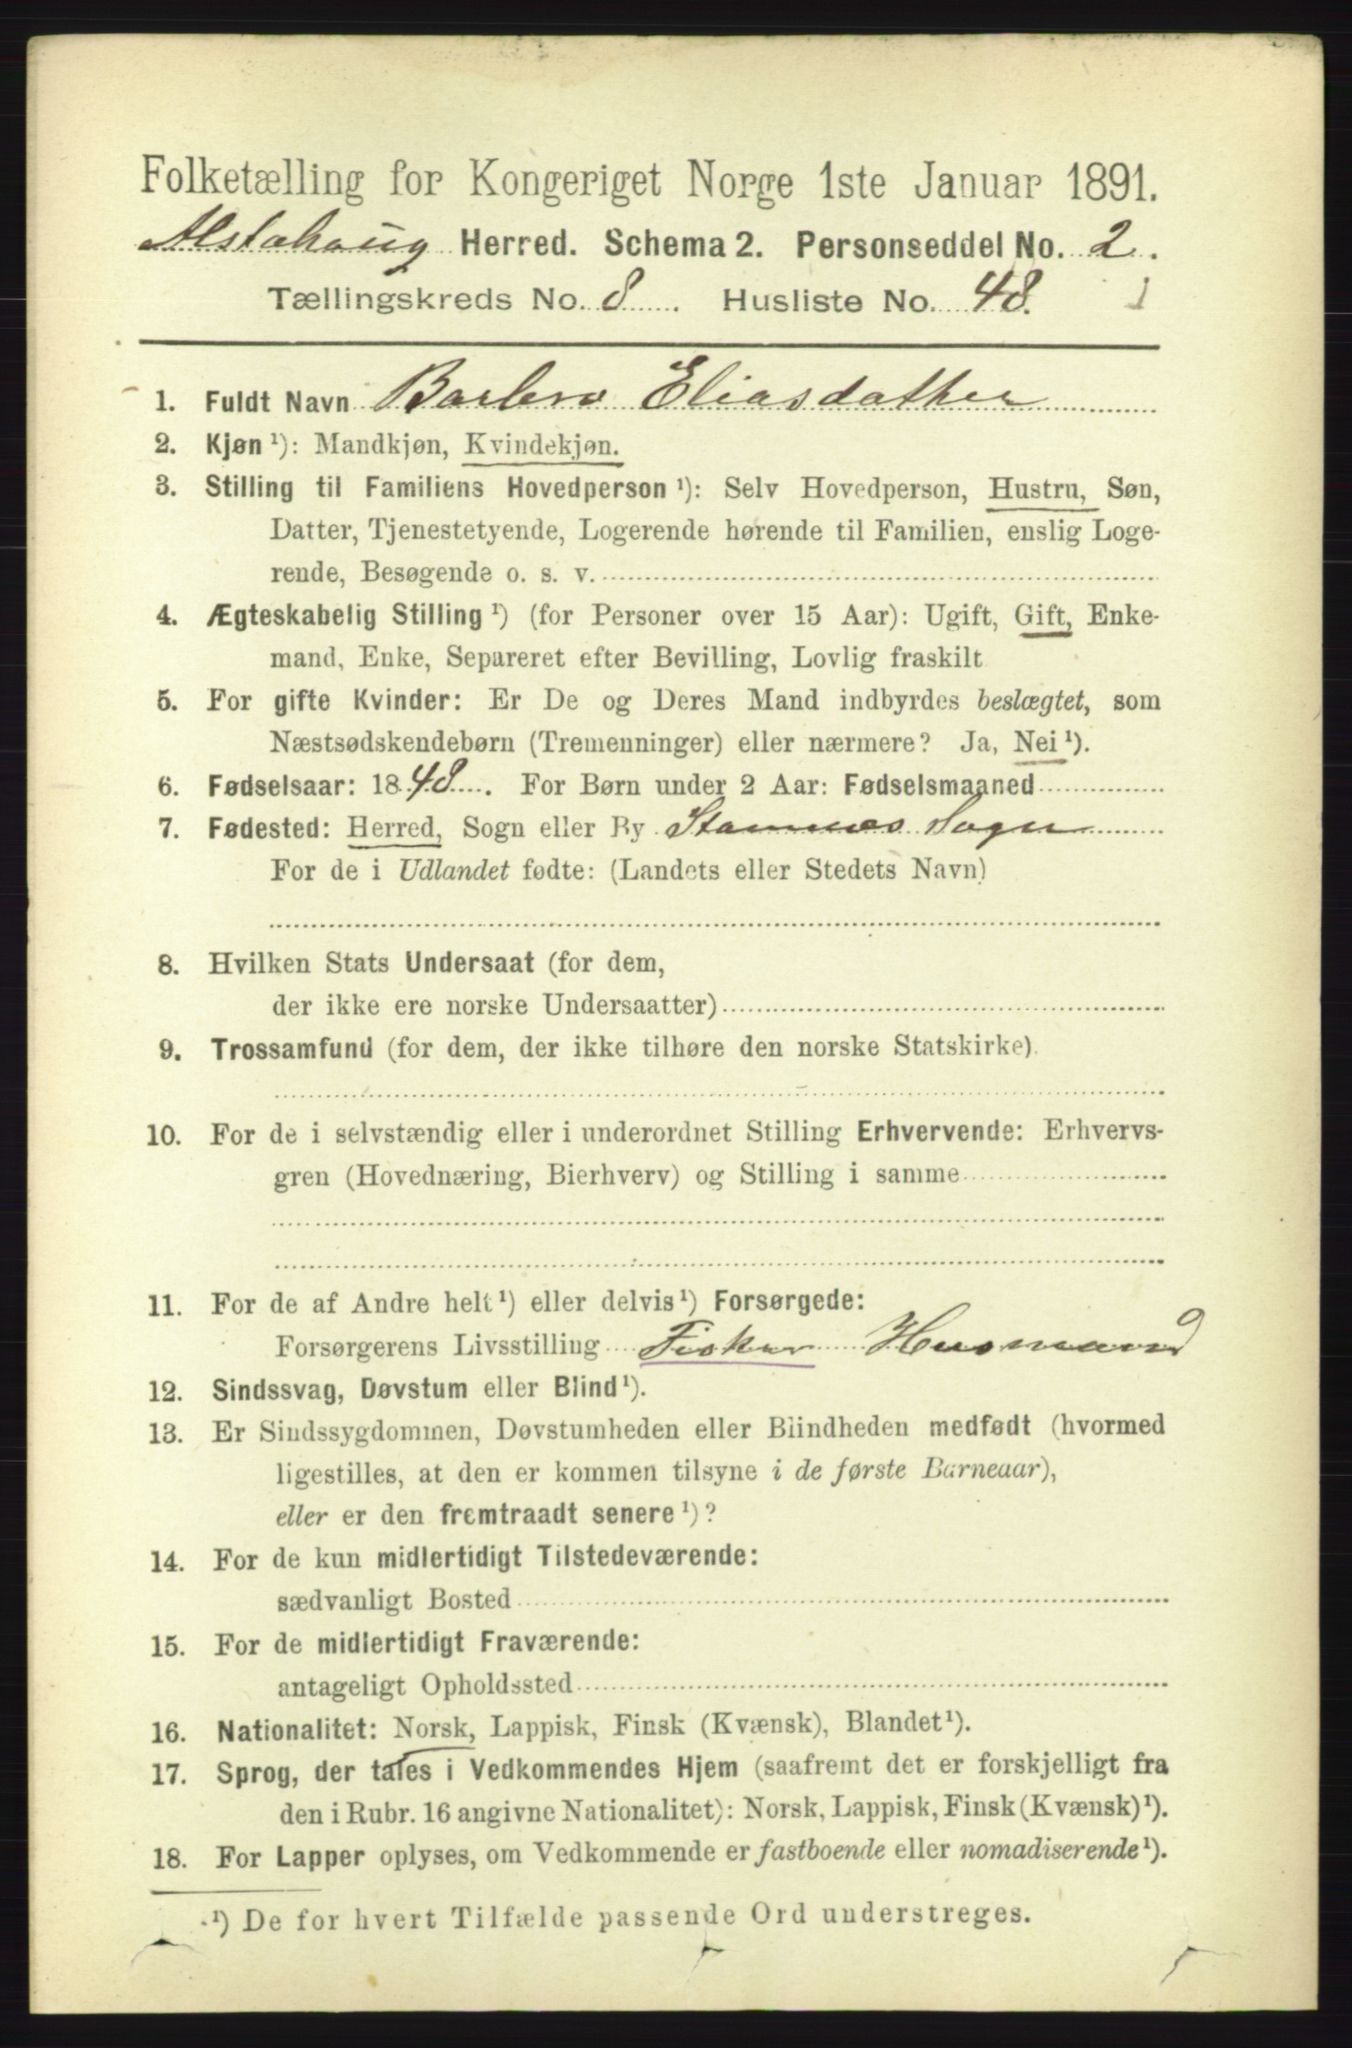 Folketælling for Kongeriget Norge 1ste Januar 1891.
Alstahoug Herred. Schema 2. Personseddel No. 2.
Tællingskreds No. 8. Husliste No. 48. 1
1. Fuldt Navn Barbro Eliasdather
2. Kjøn ¹): Mandkjøn, Kvindekjøn.
3. Stilling til Familiens Hovedperson ¹): Selv Hovedperson, Hustru, Søn,
Datter, Tjenestetyende, Logerende hørende til Familien, enslig Loge-
rende, Besøgende o. s. v.
4. Ægteskabelig Stilling ¹) (for Personer over 15 Aar): Ugift, Gift, Enke-
mand, Enke, Separeret efter Bevilling, Lovlig fraskilt
5. For gifte Kvinder: Er De og Deres Mand indbyrdes beslægtet, som
Næstsødskendebørn (Tremenninger) eller nærmere? Ja, Nei ¹).
6. Fødselsaar: 1848. For Børn under 2 Aar: Fødselsmaaned
7. Fødested: Herred, Sogn eller By Stamnes Sogn
For de i Udlandet fødte: (Landets eller Stedets Navn)
8. Hvilken Stats Undersaat (for dem,
der ikke ere norske Undersaatter)
9. Trossamfund (for dem, der ikke tilhøre den norske Statskirke)
10. For de i selvstændig eller i underordnet Stilling Erhvervende: Erhvervs-
gren (Hovednæring, Bierhverv) og Stilling i samme
11. For de af Andre helt ¹) eller delvis ¹) Forsørgede:
Forsørgerens Livsstilling Fisker Husmand
12. Sindssvag, Døvstum eller Blind ¹).
13. Er Sindssygdommen, Døvstumheden eller Blindheden medfødt (hvormed
ligestilles, at den er kommen tilsyne i de første Barneaar),
eller er den fremtraadt senere ¹)?
14. For de kun midlertidigt Tilstedeværende:
sædvanligt Bosted
15. For de midlertidigt Fraværende:
antageligt Opholdssted
16. Nationalitet: Norsk, Lappisk, Finsk (Kvænsk), Blandet ¹).
17. Sprog, der tales i Vedkommendes Hjem (saafremt det er forskjelligt fra
den i Rubr. 16 angivne Nationalitet): Norsk, Lappisk, Finsk (Kvænsk) ¹).
18. For Lapper oplyses, om Vedkommende er fastboende eller nomadiserende ¹).
¹) De for hvert Tilfælde passende Ord understreges.